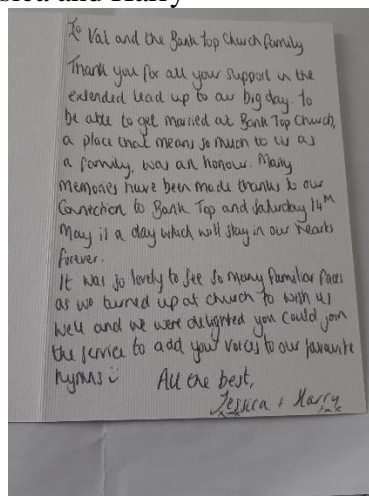 Jessica and Harry
To Val and the Bank Top Church family
Thank you for all your support in the
extended lead up to our big day. To
be able to get married at Bank Top Church,
a place that means so much to us as
a family, was an honour. Many
memories have been made thanks to our
Connection to Bank Top and Saturday 14th
May is a day which will stay in our hearts
forever.
It was so lovely to see so many familiar faces
as we turned up at church to wish us
well and we were delighted you could join
the service to add your voices to our favourite
hymns :)
All the best,
Jessica + Harry